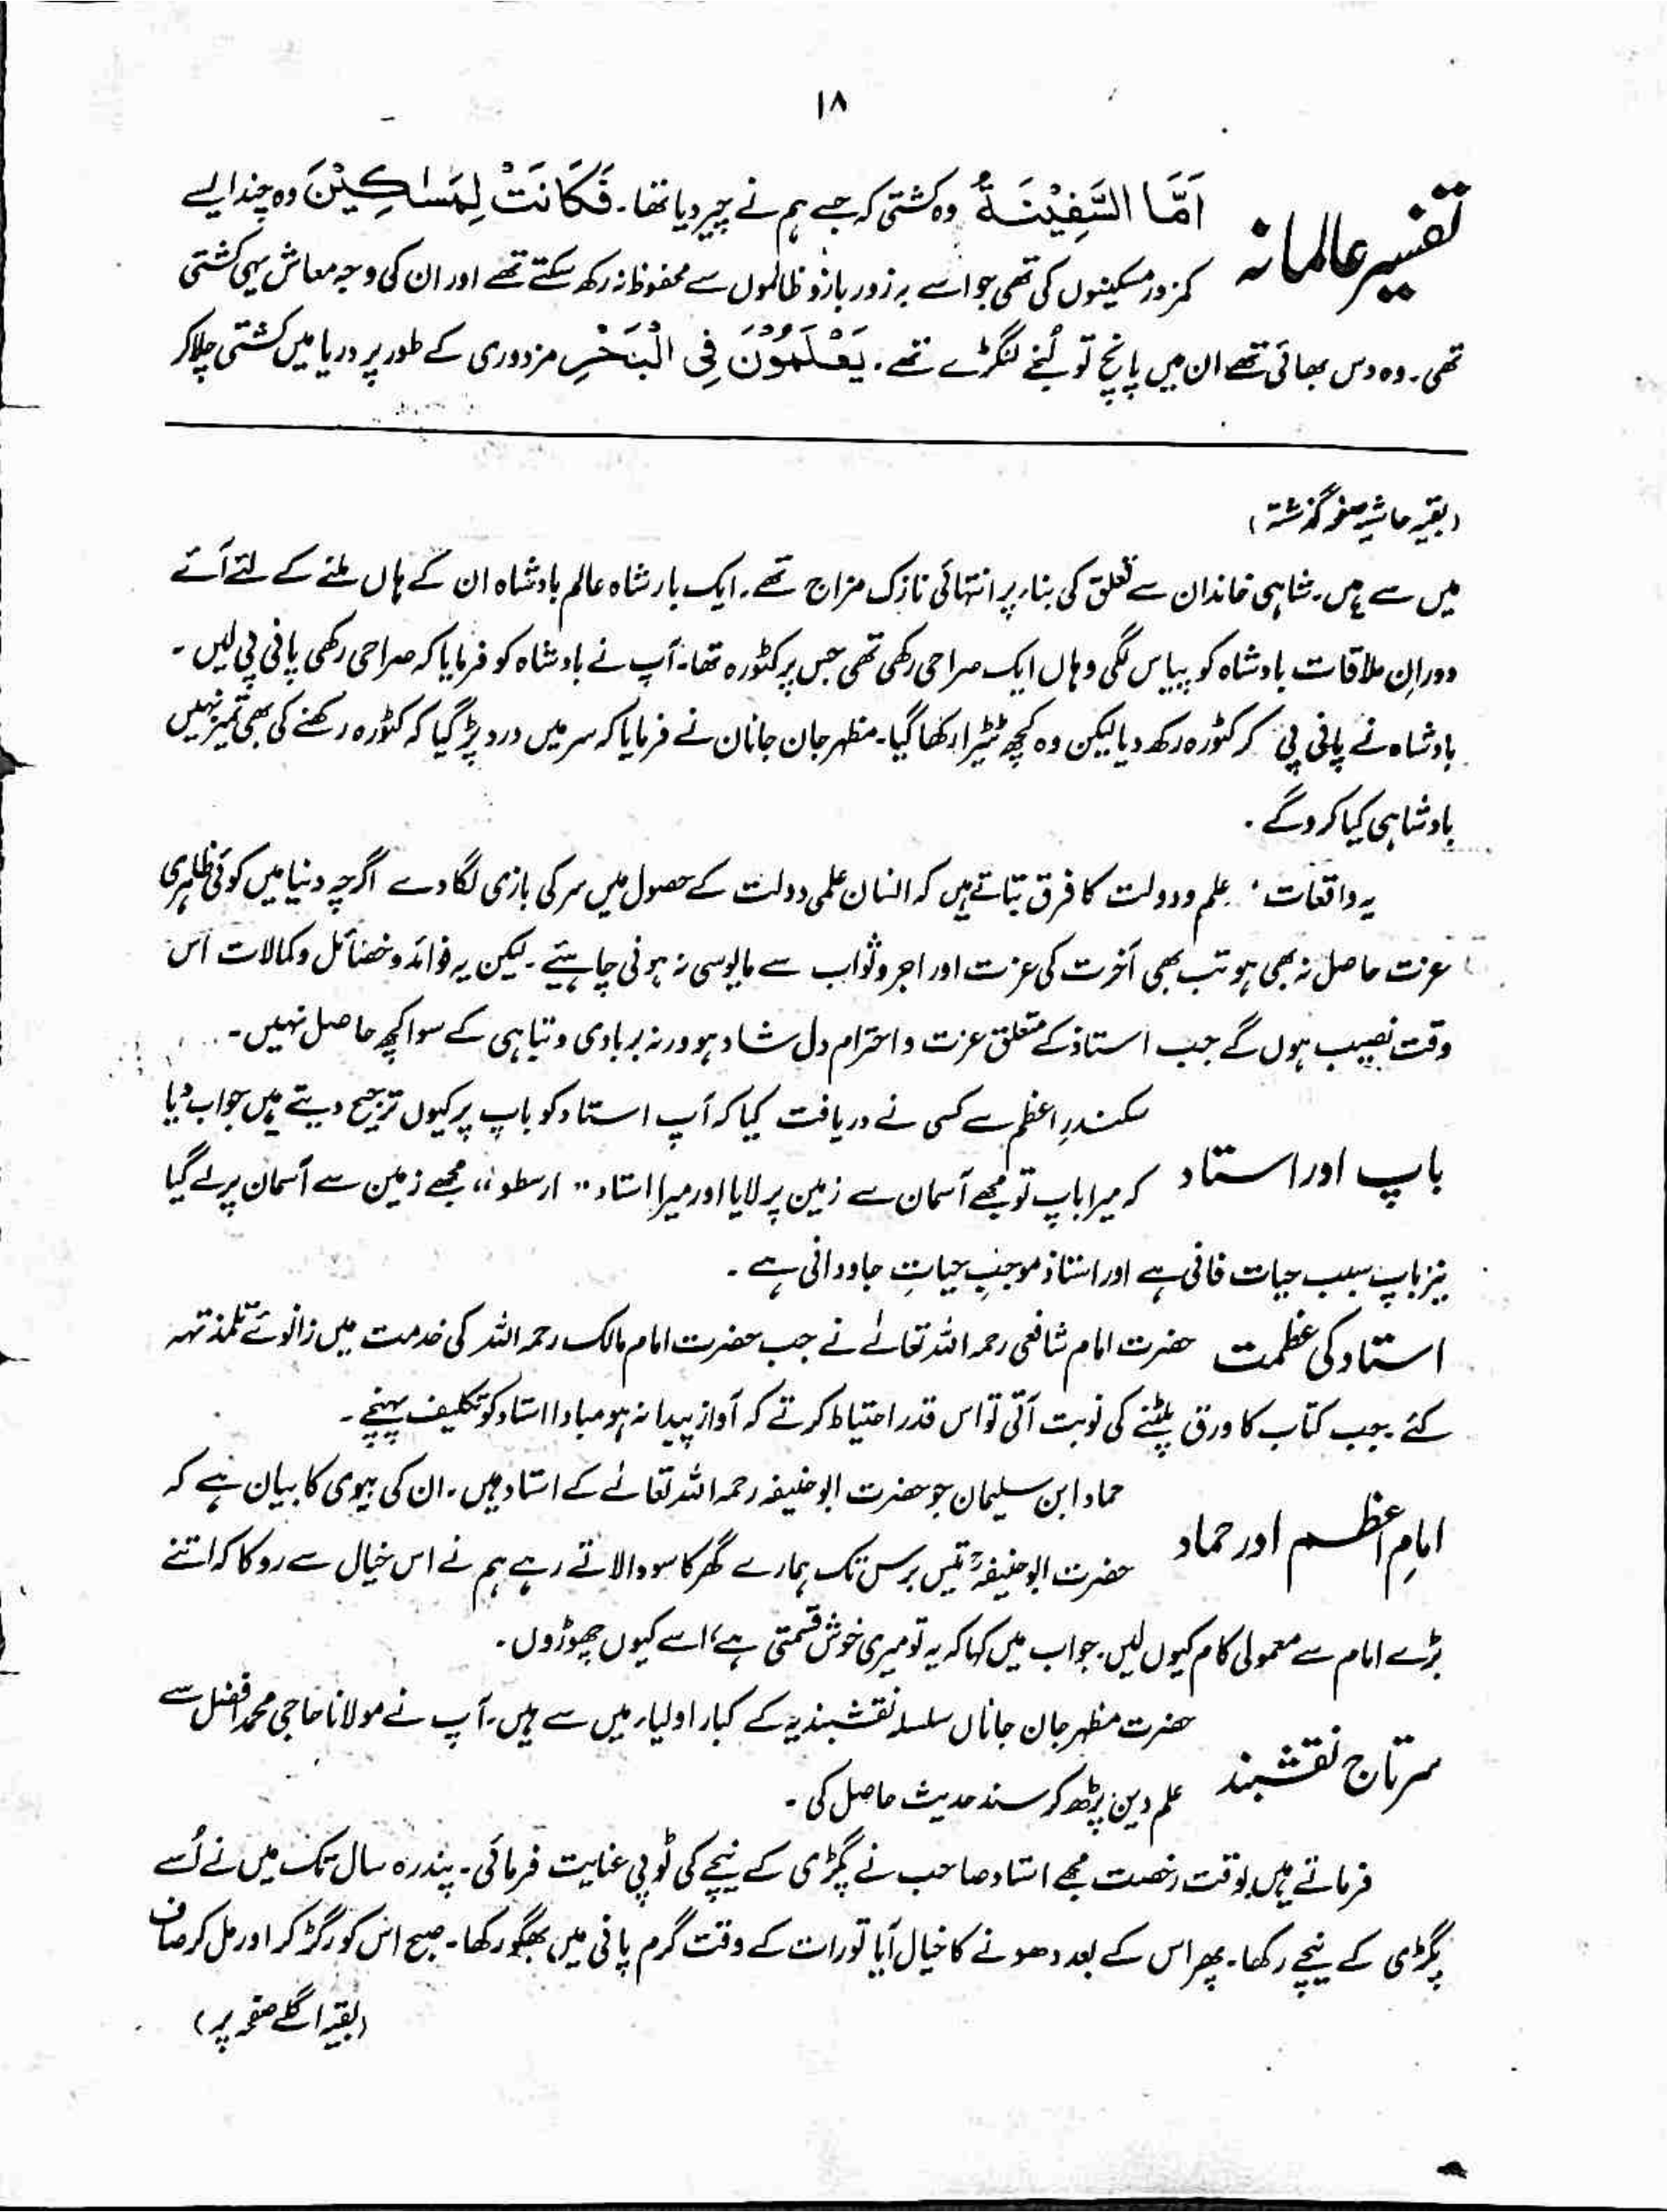 ۱۸
تفسیر عالمانہ
اَمَّا السَّفِيْنَةُ وہ کشتی کہ جسے ہم نے چیر دیا تھا۔ فَكَانَتْ لِمَسٰكِيْنَ وہ چند ایسے
کمزور مسکینوں کی تھی جو اسے بزور بازو ظالموں سے محفوظ نہ رکھ سکتے تھے اور ان کی وجہ معاش یہی کشتی
تھی۔ وہ دس بھائی تھے ان میں پانچ تو لنجے لنگڑے تھے۔ يَعْمَلُوْنَ فِى الْبَحْرِ مزدوری کے طور پر دریا میں کشتی چلا کر
(بقیہ حاشیہ صفحہ گذشتہ)
میں سے ہیں۔ شاہی خاندان سے تعلق کی بناء پر انتہائی نازک مزاج تھے۔ ایک بار شاہ عالم بادشاہ ان کے ہاں ملنے کے لئے آئے
دورانِ ملاقات بادشاہ کو پیاس لگی وہاں ایک صراحی رکھی تھی جس پر کٹورہ تھا۔ آپ نے بادشاہ کو فرمایا کہ صراحی رکھی پانی پی لیں۔
بادشاہ نے پانی پی کر کٹورہ رکھ دیا لیکن وہ کچھ ٹیڑا رکھا گیا۔ مظہر جان جانان نے فرمایا کہ سر میں درد پڑ گیا کہ کٹورہ رکھنے کی بھی تمیز نہیں
بادشاہی کیا کرو گے۔
یہ واقعات علم و دولت کا فرق بتاتے ہیں کہ انسان علمی دولت کے حصول میں سر کی بازی لگا دے اگرچہ دنیا میں کوئی ظاہری
عزت حاصل نہ بھی ہو تب بھی آخرت کی عزت اور اجر و ثواب سے مایوسی نہ ہونی چاہیئے۔ لیکن یہ فوائد و خصائل و کمالات اس
وقت نصیب ہوں گے جب استاذ کے متعلق عزت و احترام دل شاد ہو ورنہ بربادی و تباہی کے سوا کچھ حاصل نہیں۔
باپ اور استاد
سکندرِ اعظم سے کسی نے دریافت کیا کہ آپ استاد کو باپ پر کیوں ترجیح دیتے ہیں جواب دیا
کہ میرا باپ تو مجھے آسمان سے زمین پر لایا اور میرا استاد "ارسطو" مجھے زمین سے آسمان پر لے گیا
نیز باپ سبب حیات فانی ہے اور استاذ موجبِ حیاتِ جاودانی ہے۔
استاد کی عظمت حضرت امام شافعی رحمہ اللہ تعالےٰ نے جب حضرت امام مالک رحمہ اللہ کی خدمت میں زانوئے تلمذ تہہ
کئے۔ جب کتاب کا ورق پلٹنے کی نوبت آتی تو اس قدر احتیاط کرتے کہ آواز پیدا نہ ہو مبادا استاد کو تکلیف پہنچے۔
امامِ اعظم اور حماد
حماد ابن سلیمان جو حضرت ابوحنیفہ رحمہ اللہ تعالےٰ کے استاد ہیں۔ ان کی بیوی کا بیان ہے کہ
حضرت ابوحنیفہؒ تیس برس تک ہمارے گھر کا سودا لاتے رہے ہم نے اس خیال سے روکا کہ اتنے
بڑے امام سے معمولی کام کیوں لیں۔ جواب میں کہا کہ یہ تو میری خوش قسمتی ہے، اسے کیوں چھوڑوں۔
سرتاج نقشبند
حضرت مظہر جان جاناں سلسلہ نقشبندیہ کے کبار اولیاء میں سے ہیں۔ آپ نے مولانا حاجی محمد افضل سے
علم دین پڑھ کر سند حدیث حاصل کی۔
فرماتے ہیں بوقت رخصت مجھے استاد صاحب نے پگڑی کے نیچے کی ٹوپی عنایت فرمائی۔ پندرہ سال تک میں نے اُسے
پگڑی کے نیچے رکھا۔ پھر اس کے بعد دھونے کا خیال آیا تو رات کے وقت گرم پانی میں بھگو رکھا۔ صبح اس کو رگڑ کر اور مل کر صاف
(بقیہ اگلے صفحہ پر)